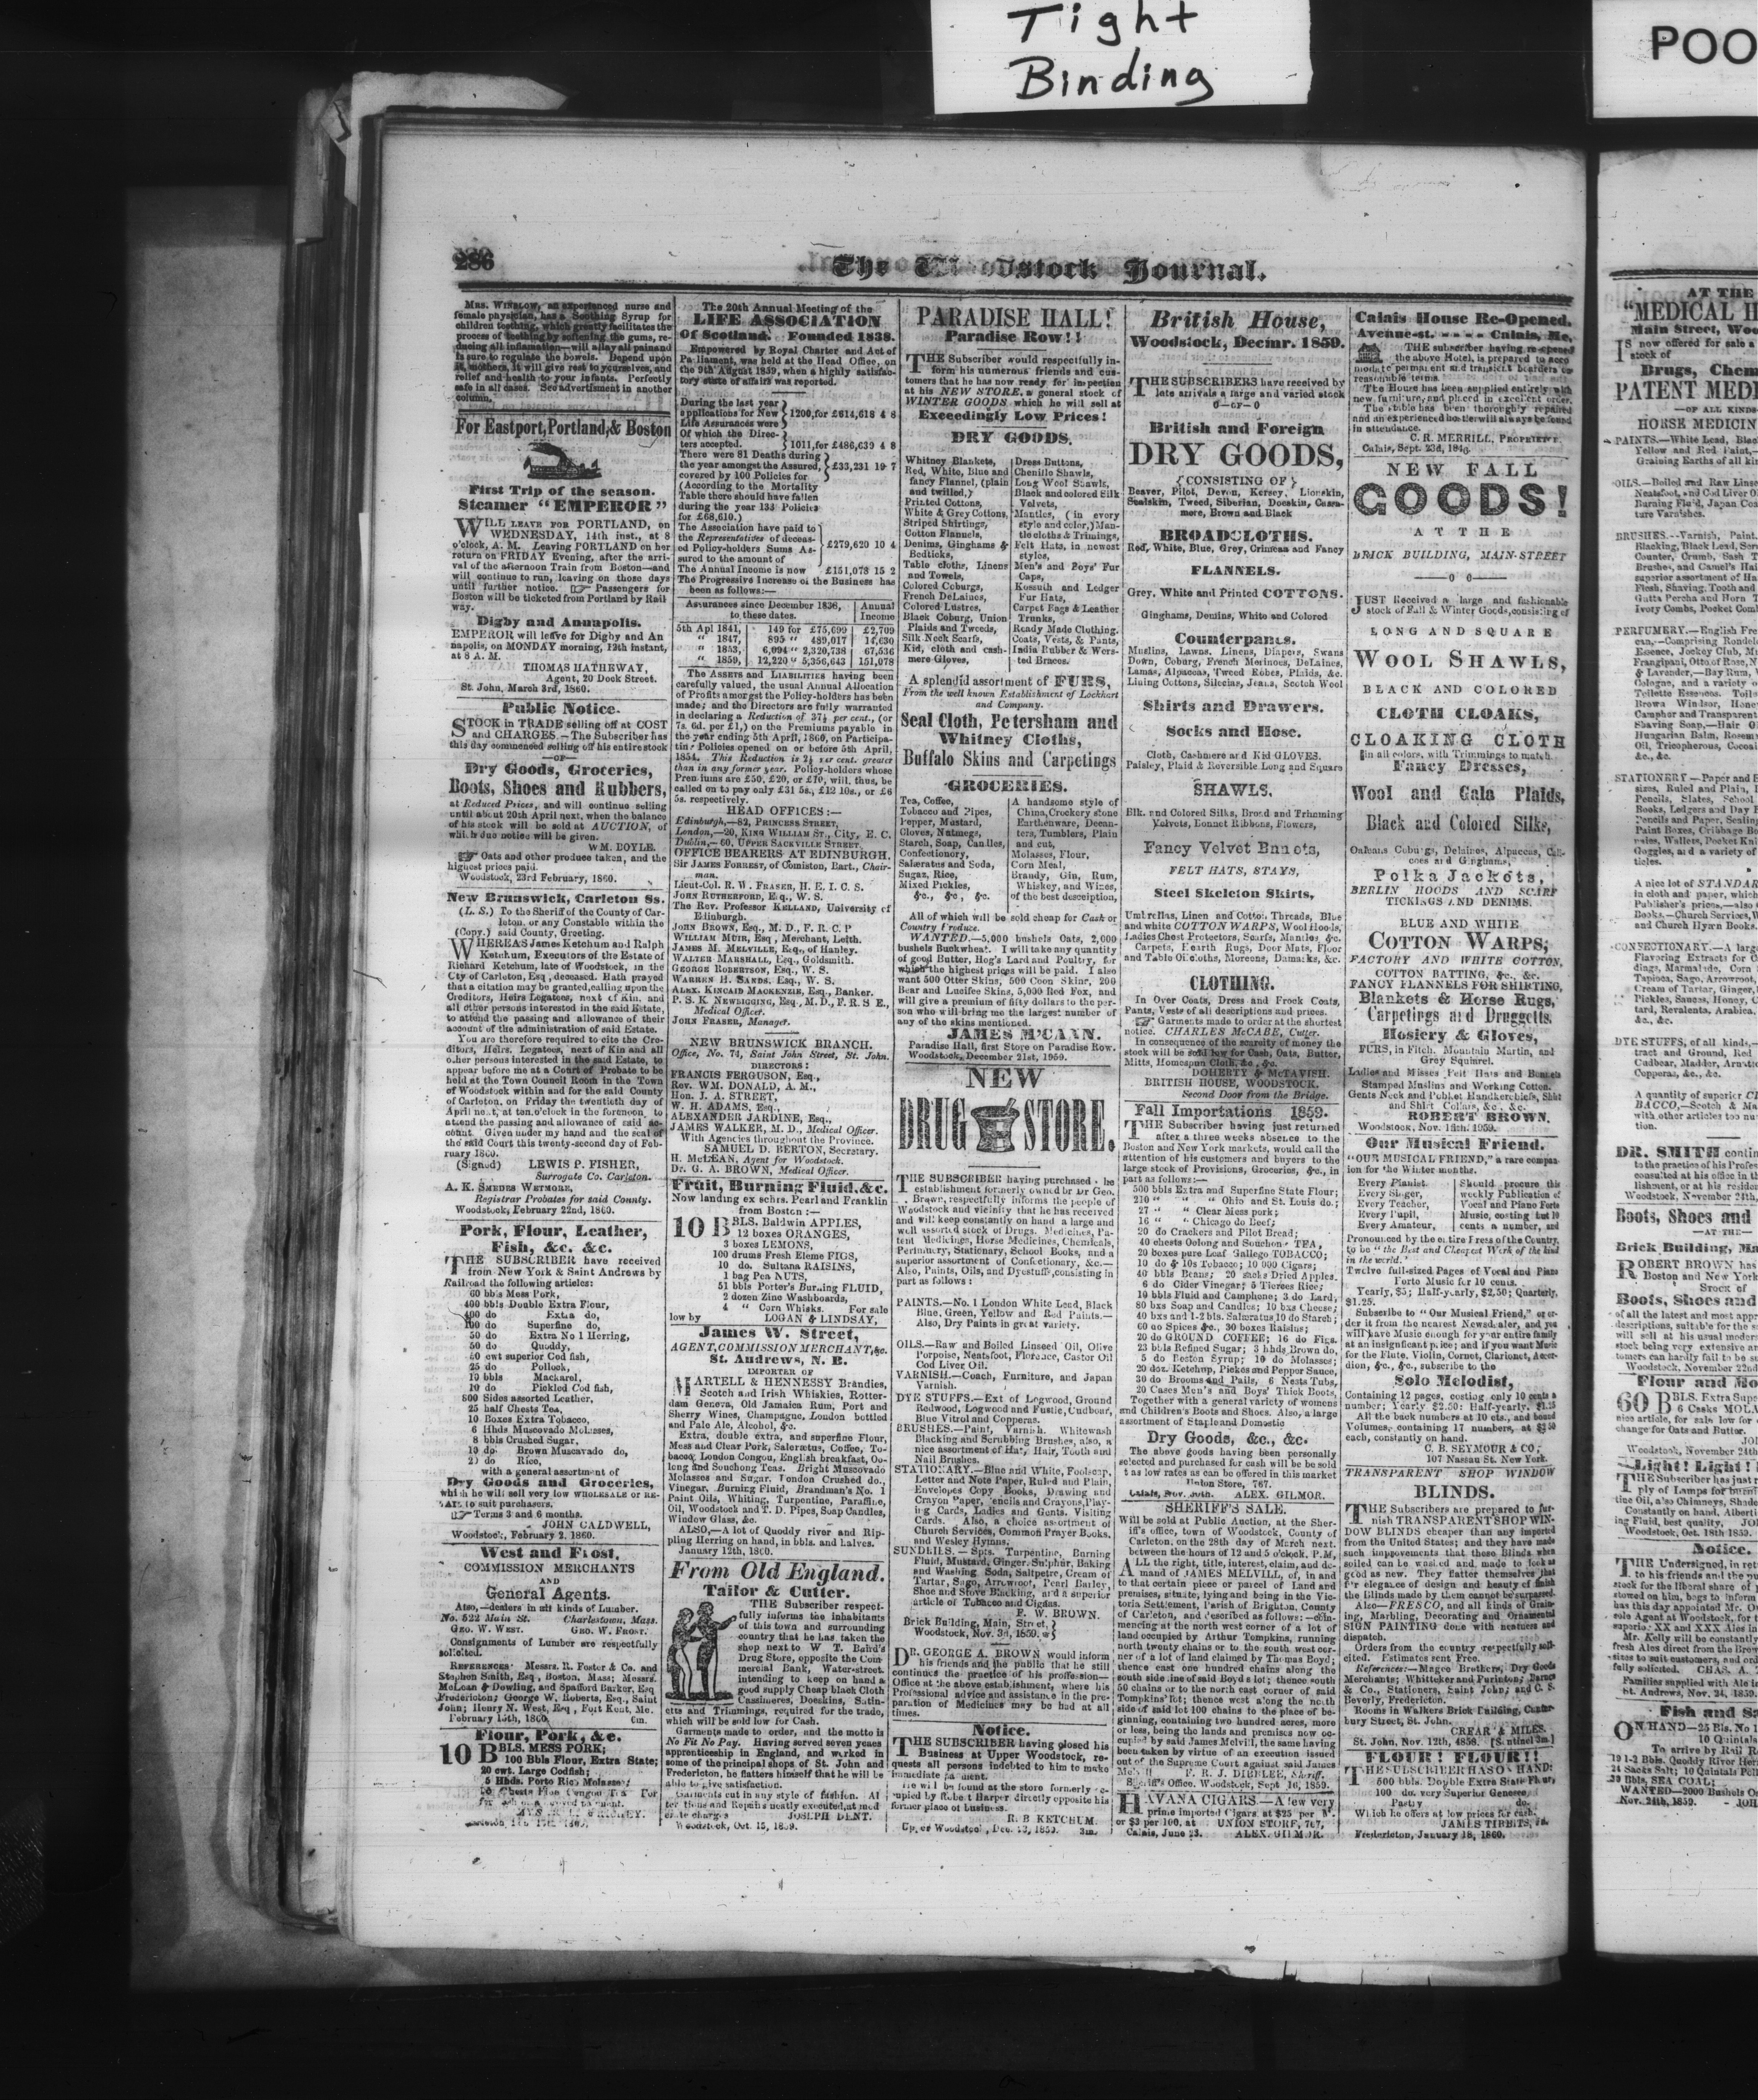 Tight
Binding
POO
286
The Woodstock Journal.
MRS. WINSLOW, an experienced nurse and
female physician, has a Soothing Syrup for
children teething, which greatly facilitates the
process of teething by softening the gums, re-
ducing all inflamation—will allay all pain and
is sure to regulate the bowels. Depend upon
it, mothers, it will give rest to yourselves, and
relief and health to your infants. Perfectly
safe in all cases. See advertisment in another
column.
For Eastport, Portland, & Boston
First Trip of the season.
Steamer "EMPEROR"
WILL LEAVE FOR PORTLAND, on
WEDNESDAY, 14th inst., at 8
o'clock, A. M. Leaving PORTLAND on her
return on FRIDAY Evening, after the arri-
val of the afternoon Train from Boston—and
will continue to run, leaving on those days
until further notice. Passengers for
Boston will be ticketed from Portland by Rail
way.
Digby and Annapolis.
EMPEROR will leave for Digby and An
napolis, on MONDAY morning, 12th instant,
at 8 A. M.
THOMAS HATHEWAY,
Agent, 20 Dock Street.
St. John, March 3rd, 1860.
Public Notice.
STOCK in TRADE selling off at COST
and CHARGES.—The Subscriber has
this day commenced selling off his entire stock
—OF—
Dry Goods, Groceries,
Boots, Shoes and Rubbers,
at Reduced Prices, and will continue selling
until about 20th April next, when the balance
of his stock will be sold at AUCTION, of
which due notice will be given.
WM. BOYLE.
Oats and other produce taken, and the
highest prices paid.
Woodstock, 23rd February, 1860.
New Brunswick, Carleton Ss.
(L. S.) To the Sheriff of the County of Car-
leton, or any Constable within the
(Copy.) said County, Greeting.
WHEREAS James Ketchum and Ralph
Ketchum, Executors of the Estate of
Richard Ketchum, late of Woodstock, in the
Cty of Carleton, Esq., deceased. Hath prayed
that a citation may be granted, calling upon the
Creditors, Heirs Legatees, next of Kin, and
all other persons interested in the said Estate,
to attend the passing and allowance of their
account of the administration of said Estate.
You are therefore required to cite the Cre-
ditors, Heirs, Legatees, next of Kin and all
other persons interested in the said Estate, to
appear before me at a Court of Probate to be
held at the Town Council Room in the Town
of Woodstock within and for the said County
of Carleton, on Friday the twentieth day of
April next, at ten o'clock in the forenoon, to
attend the passing and allowance of said ac-
count. Given under my hand and the seal of
the said Court this twenty-second day of Feb-
ruary 1860.
(Signed) LEWIS P. FISHER,
Surrogate Co. Carleton.
A. K. SMEDES WETMORE,
Registrar Probates for said County.
Woodstock, February 22nd, 1860.
Pork, Flour, Leather,
Fish, &c. &c.
THE SUBSCRIBER have received
from New York & Saint Andrews by
Railroad the following articles:
60 bbls Mess Pork,
400 bbls Double Extra Flour,
400 do Extra do,
100 do Superfine do,
50 do Extra No 1 Herring,
50 do Quoddy,
40 cwt superior Cod fish,
25 do Pollock,
10 bbls Mackarel,
10 do Pickled Cod fish,
800 Sides assorted Leather,
25 half Chests Tea,
10 Boxes Extra Tobacco,
6 Hhds Muscovado Molasses,
8 bbls Crushed Sugar,
10 do Brown Muscavado do,
20 do Rice,
with a general assortment of
Dry Goods and Groceries,
which he will sell very low WHOLESALE or RE-
TAIL to suit purchasers.
Terms 3 and 6 months.
JOHN CALDWELL,
Woodstock, February 2, 1860.
West and Frost,
COMMISSION MERCHANTS
AND
General Agents.
Also,—dealers in all kinds of Lumber.
No. 522 Main St. Charlestown, Mass.
GEO. W. WEST. GEO. W. FROST.
Consignments of Lumber are respectfully
solicited.
REFERENCES: Messrs. R. Foster & Co. and
Stephen Smith, Esq., Boston, Mass; Messrs.
McLean & Dowling, and Spafford Barker, Esq
Fredericton; George W. Roberts, Esq., Saint
John; Henry N. West, Esq., Fort Kent, Me.
February 15th, 1860. 6m.
Flour, Pork, &c.
10 BBLS. MESS PORK;
100 Bbls Flour, Extra State;
20 cwt. Large Codfish;
5 Hhds. Porto Rico Molasses;
Chests Fine Congou Tea For
The 20th Annual Meeting of the
LIFE ASSOCIATION
Of Scotland. Founded 1838.
Empowered by Royal Charter and Act of
Parliament, was held at the Head Office, on
the 9th August 1859, when a highly satisfac-
tory state of affairs was reported.
During the last year
applications for New
Life Assurances were } 1200, for £614,618 4 8
Of which the Direc-
ters accepted. } 1011, for £486,639 4 8
There were 81 Deaths during
the year amongst the Assured,
covered by 100 Policies for } £33,231 19 7
(According to the Mortality
Table there should have fallen
during the year 133 Policies
for £68,610.)
The Association have paid to
the Representatives of deceas-
ed Policy-holders Sums As-
sured to the amount of } £279,620 10 4
The Annual Income is now £151,078 15 2
The Progressive Increase of the Business has
been as follows:—
Assurances since December 1836, to these dates. | Annual Income
5th Apl 1841, 149 for £75,699 £2,709
" 1847, 895 " 489,017 14,630
" 1853, 6,094 " 2,320,738 67,536
" 1859, 12,220 " 5,356,643 151,078
The ASSETS and LIABILITIES having been
carefully valued, the usual Annual Allocation
of Profits amongst the Policy-holders has been
made; and the Directors are fully warranted
in declaring a Reduction of 37½ per cent., (or
7s. 6d. per £1,) on the Premiums payable in
the year ending 5th April, 1860, on Participa-
ting Policies opened on or before 5th April,
1854. This Reduction is 2½ per cent. greater
than in any former year. Policy-holders whose
Premiums are £50, £20, or £10, will, thus, be
called on to pay only £31 5s., £12 10s., or £6
5s. respectively.
HEAD OFFICES:—
Edinburgh,—82, PRINCESS STREET,
London,—20, KING WILLIAM ST., City, E. C.
Dublin,—60, UPPER SACKVILLE STREET.
OFFICE BEARERS AT EDINBURGH.
Sir JAMES FORREST, of Comiston, Bart., Chair-
man.
Lieut-Col. R. W. FRASER, H. E. I. C. S.
JOHN RUTHERFORD, Esq., W. S.
The Rev. Professor KELLAND, University of
Edinburgh.
JOHN BROWN, Esq., M. D., F. R. C. P
WILLIAM MUIR, Esq., Merchant, Leith.
JAMES M. MELVILLE, Esq., of Hanley.
WALTER MARSHALL, Esq., Goldsmith.
GEORGE ROBERTSON, Esq., W. S.
WARREN H. SANDS, Esq., W. S.
ALEX. KINCAID MACKENZIE, Esq., Banker.
P. S. K. NEWBIGGING, Esq., M. D., F. R. S E.,
Medical Officer.
JOHN FRASER, Manager.
NEW BRUNSWICK BRANCH.
Office, No. 74, Saint John Street, St. John.
DIRECTORS:
FRANCIS FERGUSON, Esq.,
Rev. WM. DONALD, A. M.,
Hon. J. A. STREET,
W. H. ADAMS, Esq.,
ALEXANDER JARDINE, Esq.,
JAMES WALKER, M. D., Medical Officer.
With Agencies throughout the Province.
SAMUEL D. BERTON, Secretary.
H. McLEAN, Agent for Woodstock.
Dr. G. A. BROWN, Medical Officer.
Fruit, Burning Fluid, &c.
Now landing ex schrs. Pearl and Franklin
from Boston:—
10 BBLS. Baldwin APPLES,
12 boxes ORANGES,
3 boxes LEMONS,
100 drums Fresh Eleme FIGS,
10 do. Sultana RAISINS,
1 bag Pea NUTS,
51 bbls Porter's Burning FLUID,
2 dozen Zinc Washboards,
4 " Corn Whisks. For sale
low by LOGAN & LINDSAY,
James W. Street,
AGENT, COMMISSION MERCHANT, &c.
St. Andrews, N. B.
IMPORTER OF
MARTELL & HENNESSY Brandies,
Scotch and Irish Whiskies, Rotter-
dam Geneva, Old Jamaica Rum, Port and
Sherry Wines, Champagne, London bottled
and Pale Ale, Alcohol, &c.
Extra, double extra, and superfine Flour,
Mess and Clear Pork, Saleratus, Coffee, To-
bacco, London Congou, English breakfast, Oo-
long and Souchong Teas. Bright Muscovado
Molasses and Sugar, London Crushed do.,
Vinegar, Burning Fluid, Brandman's No. 1
Paint Oils, Whiting, Turpentine, Paraffine,
Oil, Woodstock and T. D. Pipes, Soap Candles,
Window Glass, &c.
ALSO,—A lot of Quoddy river and Rip-
pling Herring on hand, in bbls. and halves.
January 12th, 1860.
From Old England.
Tailor & Cutter.
THE Subscriber respect-
fully informs the inhabitants
of this town and surrounding
country that he has taken the
shop next to W T. Baird's
Drug Store, opposite the Com
mercial Bank, Water-street.
intending to keep on hand a
good supply Cheap black Cloth
Cassimeres, Doeskins, Satin-
etts and Trimmings, required for the trade,
which will be sold low for Cash.
Garments made to order, and the motto is
No Fit No Pay. Having served seven years
apprenticeship in England, and worked in
some of the principal shops of St. John and
Fredericton, he flatters himself that he will be
able to give satisfaction.
Garments cut in any style of fashion. Al
terations and Repairs neatly executed, at mod
erate charges JOSEPH DENT.
Woodstock, Oct. 15, 1859.
PARADISE HALL!
Paradise Row!!
THE Subscriber would respectfully in-
form his numerous friends and cus-
tomers that he has now ready for inspection
at his NEW STORE, a general stock of
WINTER GOODS which he will sell at
Exceedingly Low Prices!
DRY GOODS.
Whitney Blankets,
Red, White, Blue and
fancy Flannel, (plain
and twilled,)
Printed Cottons,
White & Grey Cottons,
Striped Shirtings,
Cotton Flannels,
Denims, Ginghams &
Bedticks,
Table cloths, Linens
and Towels,
Colored Coburgs,
French DeLaines,
Colored Lustres,
Black Coburg, Union
Plaids and Tweeds,
Silk Neck Scarfs,
Kid, cloth and cash-
mere Gloves,
Dress Buttons,
Chenille Shawls,
Long Wool Shawls,
Black and colored Silk
Velvets,
Mantles, (in every
style and color,) Man-
tle cloths & Trimings,
Felt Hats, in newest
styles,
Men's and Boys' Fur
Caps,
Kossuth and Ledger
Fur Hats,
Carpet Bags & Leather
Trunks,
Ready Made Clothing.
Coats, Vests, & Pants,
India Rubber & Wors-
ted Braces.
A splendid assortment of FURS,
From the well known Establishment of Lockhart
and Company.
Seal Cloth, Petersham and
Whitney Cloths,
Buffalo Skins and Carpetings
GROCERIES.
Tea, Coffee,
Tobacco and Pipes,
Pepper, Mustard,
Cloves, Nutmegs,
Starch, Soap, Candles,
Confectionery,
Salæratus and Soda,
Sugar, Rice,
Mixed Pickles,
&c., &c., &c.
A handsome style of
China, Crockery stone
Earthenware, Decan-
ters, Tumblers, Plain
and cut,
Molasses, Flour,
Corn Meal,
Brandy, Gin, Rum,
Whiskey, and Wines,
of the best desciption,
All of which will be sold cheap for Cash or
Country Produce.
WANTED.—5,000 bushels Oats, 2,000
bushels Buckwheat. I will take any quantity
of good Butter, Hog's Lard and Poultry, for
which the highest prices will be paid. I also
want 500 Otter Skins, 500 Coon Skins, 200
Bear and Lucifee Skins, 5,000 Red Fox, and
will give a premium of fifty dollars to the per-
son who will bring me the largest number of
any of the skins mentioned.
JAMES M'CANN.
Paradise Hall, first Store on Paradise Row.
Woodstock, December 21st, 1959.
NEW
DRUG STORE.
THE SUBSCRIBER having purchased the
establishment formerly owned by Dr Geo.
Brown, respectfully informs the people of
Woodstock and vicinity that he has received
and will keep constantly on hand a large and
well assorted stock of Drugs, Medicines, Pa-
tent Medicines, Horse Medicines, Chemicals,
Perfumery, Stationary, School Books, and a
superior assortment of Confectionary, &c.—
Also, Paints, Oils, and Dyestuffs, consisting in
part as follows:
PAINTS.—No. 1 London White Lead, Black
Blue, Green, Yellow and Red Paints.—
Also, Dry Paints in great variety.
OILS.—Raw and Boiled Linseed Oil, Olive
Porpoise, Neatsfoot, Florence, Castor Oil
Cod Liver Oil.
VARNISH.—Coach, Furniture, and Japan
Varnish.
DYE STUFFS.—Ext of Logwood, Ground
Redwood, Logwood and Fustic, Cudbear,
Blue Vitrol and Copperas.
BRUSHES.—Paint, Varnish, Whitewash
Blacking and Scrubbing Brushes, also, a
nice assortment of Hat, Hair, Tooth and
Nail Brushes.
STATIONARY.—Blue and White, Foolscap,
Letter and Note Paper, Ruled and Plain,
Envelopes Copy Books, Drawing and
Crayon Paper, Pencils and Crayons, Play-
ing Cards, Ladies and Gents. Visiting
Cards. Also, a choice assortment of
Church Services, Common Prayer Books,
and Wesley Hymns.
SUNDRIES.—Spts. Turpentine, Burning
Fluid, Mustard, Ginger, Sulphur, Baking
and Washing Soda, Saltpetre, Cream of
Tartar, Sago, Arrowroot, Pearl Barley,
Shoe and Stove Blacking, and a superior
article of Tobacco and Cigars.
F. W. BROWN.
Brick Building, Main, Street,
Woodstock, Nov. 3d, 1859.
DR. GEORGE A. BROWN would inform
his friends and the public that he still
continues the practice of his profession—
Office at the above establishment, where his
Professional advice and assistance in the pre-
paration of Medicines may be had at all
times.
Notice.
THE SUBSCRIBER having closed his
Business at Upper Woodstock, re-
quests all persons indebted to him to make
immediate payment.
He will be found at the store formerly oc-
cupied by Robert Harper directly opposite his
former place of business.
R. B KETCHUM.
Upper Woodstock, Dec. 10, 1859. 3m.
British House,
Woodstock, Decmr. 1859.
THE SUBSCRIBERS have received by
late arrivals a large and varied stock
0—OF—0
British and Foreign
DRY GOODS,
{CONSISTING OF}
Beaver, Pilot, Devon, Kersey, Lionskin,
Sealskin, Tweed, Siberian, Doeskin, Cassi-
mere, Brown and Black
BROADCLOTHS.
Red, White, Blue, Grey, Crimean and Fancy
FLANNELS.
Grey, White and Printed COTTONS.
Ginghams, Demins, White and Colored
Counterpanes.
Muslins, Lawns, Linens, Diapers, Swans
Down, Coburg, French Merinoes, DeLaines,
Lamas, Alpaccas, Tweed Robes, Plaids, &c.
Lining Cottons, Silecias, Jeans, Scotch Wool
Shirts and Drawers.
Socks and Hose.
Cloth, Cashmere and Kid GLOVES.
Paisley, Plaid & Reversible Long and Square
SHAWLS.
Blk. and Colored Silks, Broad and Trimming
Velvets, Bonnet Ribbons, Flowers,
Fancy Velvet Bonnets,
FELT HATS, STAYS,
Steel Skeleton Skirts,
Umbrellas, Linen and Cotton Threads, Blue
and white COTTON WARPS, Wool Hoods,
Ladies Chest Protectors, Scarfs, Mantles, &c.
Carpets, Hearth Rugs, Door Mats, Floor
and Table Oilcloths, Moreens, Damasks, &c.
CLOTHING.
In Over Coats, Dress and Frock Coats,
Pants, Vests of all descriptions and prices.
Garments made to order at the shortest
notice. CHARLES McCABE, Cutter.
In consequence of the scarcity of money the
stock will be sold low for Cash, Oats, Butter,
Mitts, Homespun Cloth, &c., &c.
DOHERTY & McTAVISH.
BRITISH HOUSE, WOODSTOCK.
Second Door from the Bridge.
Fall Importations 1859.
THE Subscriber having just returned
after a three weeks absence to the
Boston and New York markets, would call the
attention of his customers and buyers to the
large stock of Provisions, Groceries, &c., in
part as follows:—
500 bbls Extra and Superfine State Flour;
210 " " " Ohio and St. Louis do.;
27 " " Clear Mess pork;
16 " " Chicago do Beef;
20 do Crackers and Pilot Bread;
40 chests Oolong and Souchong TEA,
20 boxes pure Leaf Gallego TOBACCO;
10 do & 10s Tobacco; 10 000 Cigars;
40 bbls Beans; 20 sacks Dried Apples.
6 do Cider Vinegar; 5 Tierces Rice;
10 bbls Fluid and Camphene; 3 do Lard,
80 bxs Soap and Candles; 10 bxs Cheese;
40 bxs and 1-2 bls. Salæratus 10 do Starch;
60 do Spices &c. 30 boxes Raisins;
20 do GROUND COFFEE; 16 do Figs.
23 bbls Refined Sugar; 3 hhds Brown do,
5 do Boston Syrup; 10 do Molasses;
20 doz. Ketchup, Pickes and Pepper Sauce,
30 do Brooms and Pails, 6 Nests Tubs,
20 Cases Men's and Boys' Thick Boots,
Together with a general variety of womens
and Children's Boots and Shoes. Also, a large
assortment of Staple and Domestic
Dry Goods, &c., &c.
The above goods having been personally
selected and purchased for cash will be be sold
t as low rates as can be offered in this market
Union Store, 767.
Calais, Nov. 30th. ALEX. GILMOR.
SHERIFF'S SALE.
Will be sold at Public Auction, at the Sher-
iff's office, town of Woodstock, County of
Carleton, on the 28th day of March next,
between the hours of 12 and 5 o'clock, P.M,
ALL the right, title, interest, claim, and de-
mand of JAMES MELVILL, of, in and
to that certain piece or parcel of Land and
premises, situate, lying and being in the Vic-
toria Settlement, Parish of Brighton, County
of Carleton, and described as follows:—com-
mencing at the north west corner of a lot of
land occupied by Arthur Tompkins, running
north twenty chains or to the south west cor-
ner of a lot of land claimed by Thomas Boyd;
thence east one hundred chains along the
south side line of said Boyd's lot; thence south
50 chains or to the north east corner of said
Tompkins' lot; thence west along the north
side of said lot 100 chains to the place of be-
ginning, containing two hundred acres, more
or less, being the lands and premises now oc-
cupied by said James Melvill, the same having
been taken by virtue of an execution issued
out of the Supreme Court against said James
Melvill
F. R. J. DIBBLEE, Sheriff.
Sheriff's Office, Woodstock, Sept 16, 1859.
HAVANA CIGARS.—A few very
prime imported Cigars at $25 per M.
or $3 per 100, at UNION STORE, 767,
Calais, June 23. ALEX. GILMOR.
Calais House Re-Opened.
Avenue-st. - - - - Calais, Me.
THE subscriber having re-opened
the above Hotel, is prepared to acco
modate permanent and transient boarders on
reasonable terms.
The House has been supplied entirely with
new furniture, and placed in excellent order.
The stable has been thoroughly repaired
and an experienced hostler will always be found
in attendance.
C. R. MERRILL, PROPRIETOR.
Calais, Sept. 23d, 1849.
NEW FALL
GOODS!
AT THE
BRICK BUILDING, MAIN-STREET
——0 0——
JUST Received a large and fashionable
stock of Fall & Winter Goods, consisting of
LONG AND SQUARE
WOOL SHAWLS,
BLACK AND COLORED
CLOTH CLOAKS,
CLOAKING CLOTH
in all colors, with Trimmings to match.
Fancy Dresses,
Wool and Gala Plaids,
Black and Colored Silks,
Orleans Coburgs, Delaines, Alpaccas, Cali-
coes and Ginghams,
Polka Jackets,
BERLIN HOODS AND SCARF
TICKINGS AND DENIMS.
BLUE AND WHITE
COTTON WARPS,
FACTORY AND WHITE COTTON,
COTTON BATTING, &c., &c.
FANCY FLANNELS FOR SHIRTING,
Blankets & Horse Rugs,
Carpetings and Druggetts.
Hosiery & Gloves,
FURS, in Fitch, Mountain Martin, and
Grey Squirrel.
Ladies and Misses Felt Hats and Bonnets
Stamped Muslins and Working Cotten.
Gents Neck and Pocket Handkerchiefs, Shirt
and Shirt Collars, &c., &c.
ROBERT BROWN.
Woodstock, Nov. 18th. 1959.
Our Musical Friend.
"OUR MUSICAL FRIEND," a rare compan-
ion for the Winter months.
Every Pianist,
Every Singer,
Every Teacher,
Every Pupil,
Every Amateur,
Should procure this
weekly Publication of
Vocal and Piano Forte
Music, costing but 10
cents a number, and
Pronounced by the entire Press of the Country,
to be "the Best and Cheapest Work of the kind
in the world."
Twelve full-sized Pages of Vocal and Piano
Forte Music for 10 cents.
Yearly, $5; Half-yearly, $2,50; Quarterly,
$1.25.
Subscribe to "Our Musical Friend," or or-
der it from the nearest Newsdealer, and you
will have Music enough for your entire family
at an insignficant price; and if you want Music
for the Flute, Violin, Cornet, Clarionet, Accor-
dion, &c., &c., subscribe to the
Solo Melodist,
Containing 12 pages, costing only 10 cents a
number; Yearly $2.50: Half-yearly, $1.25
All the back numbers at 10 cts., and bound
Volumes, containing 17 numbers, at $2 50
each, constantly on hand.
C. B. SEYMOUR & CO,
107 Nassau St. New York.
TRANSPARENT SHOP WINDOW
BLINDS.
THE Subscribers are prepared to fur-
nish TRANSPARENT SHOP WIN-
DOW BLINDS cheaper than any imported
from the United States; and they have made
such improvements that these Blinds when
soiled can be washed and made to look as
good as new. They flatter themselves that
for elegance of design and beauty of finish
the Blinds made by them cannot be surpassed.
Also—FRESCO, and all kinds of Grain-
ing, Marbling, Decorating and Ornamental
SIGN PAINTING done with neatness and
dispatch.
Orders from the country respectfully soli-
cited. Estimates sent Free.
References:—Magee Brothers, Dry Goods
Merchants; Whitteker and Purinton; Barnes
& Co., Stationers, Saint John; and C. S.
Beverly, Fredericton.
Rooms in Walkers Brick Building, Canter-
bury Street, St. John.
CREAR & MILES.
St. John, Nov. 12th, 1858. [Sentinel 3m.]
FLOUR! FLOUR!!
THE SUBSCRIBER HAS ON HAND:
500 bbls. Double Extra State Flour,
100 do. very Superior Genesee
Pastry do.
Which he offers at low prices for cash.
JAMES TIBBITS, Jr.
Fredericton, January 18, 1860.
AT THE
"MEDICAL H
Main Street, Woo
IS now offered for sale a
stock of
Drugs, Chem
PATENT MEDI
—OF ALL KINDS
HORSE MEDICIN
PAINTS.—White Lead, Blac
Yellow and Red Paint,—
Graining Earths of all ki
OILS.—Boiled and Raw Linse
Neatsfoot, and Cod Liver O
Burning Fluid, Japan Coa
ture Varnishes.
BRUSHES.—Varnish, Paint,
Blacking, Black Lead, Scr
Counter, Crumb, Sash T
Brushes, and Camel's Hai
superior assortment of Ha
Flesh, Shaving, Tooth and
Gutta Percha and Horn T
Ivory Combs, Pocket Com
PERFUMERY.—English Fre
can,—Comprising Rondel
Essence, Jockey Club, Mu
Frangipani, Otto of Rose, N
& Lavender,—Bay Rum, V
Cologne, and a variety o
Toilette Essences. Toil
Brown Windsor, Hone
Camphor and Transparent
Shaving Soap,—Hair O
Hungarian Balm, Rosem
Oil, Tricopherous, Cocoa
&c., &c.
STATIONERY—Paper and E
sizes, Ruled and Plain, I
Pencils, Slates, School
Books, Ledgers and Day B
Pencils and Paper, Sealing
Paint Boxes, Cribbage Bo
Goggles, and a variety of
ticles.
A nice lot of STANDAR
in cloth and paper, which
Publisher's prices,—also
Books.—Church Services, W
and Church Hymn Books.
CONFECTIONARY.—A larg
Flavoring Extracts for C
dings, Marmalade, Corn
Tapioca, Sago, Arrowroot,
Cream of Tartar, Ginger,
Pickles, Sauces, Honey, C
tard, Revalenta, Arabica,
&c., &c.
DYE STUFFS, of all kinds,—
tract and Ground, Red
Cudbear, Madder, Arnatic
Copperas, &c., &c.
A quantity of superior CI
BACCO,—Scotch & Ma
with other articles too nu
tion.
DR. SMITH contin
to the practice of his Profes
consulted at his office in th
lishment, or at his residen
Woodstock, November 24th,
Boots, Shoes and
—AT THE—
Brick Building, Ma
ROBERT BROWN has
Boston and New York
Stock of
Boots, Shoes and
of all the latest and most appr
descriptions, suitable for the s
will sell at his usual moder
stock being very extensive an
tomers can hardly fail to be su
Woodstock, November 22nd
Flour and Mo
60 BBLS. Extra Supe
6 Casks MOLA
nice article, for sale low for
change for Oats and Butter.
JOH
Woodstock, November 24th
Light! Light!
THE Subscriber has just r
ply of Lamps for burni
tine Oil, also Chimneys, Shade
Constantly on hand, Alberti
ing Fluid, best quality, JOH
Woodstock, Oct. 18th 1859.
Notice.
THE Undersigned, in ret
to his friends and the pu
stock for the liberal share of
stowed on him, begs to inform
has this day appointed Mr. O
sole Agent at Woodstock, for t
superior XX and XXX Ales in
Mr. Kelly will be constantly
fresh Ales direct from the Brew
sizes to suit customers, and ord
fully solicited. CHAS. A.
Families supplied with Ale i
St. Andrews, Nov. 24, 1859.
Fish and Sa
ON HAND—25 Bls. No 1
10 Quintals
To arrive by Rail R
19 1-2 Bbls. Quoddy River Her
24 Sacks Salt; 10 Quintals Poll
20 Bbls, SEA COAL;
WANTED—2000 Bushels O
Nov. 24th, 1859. - JOH